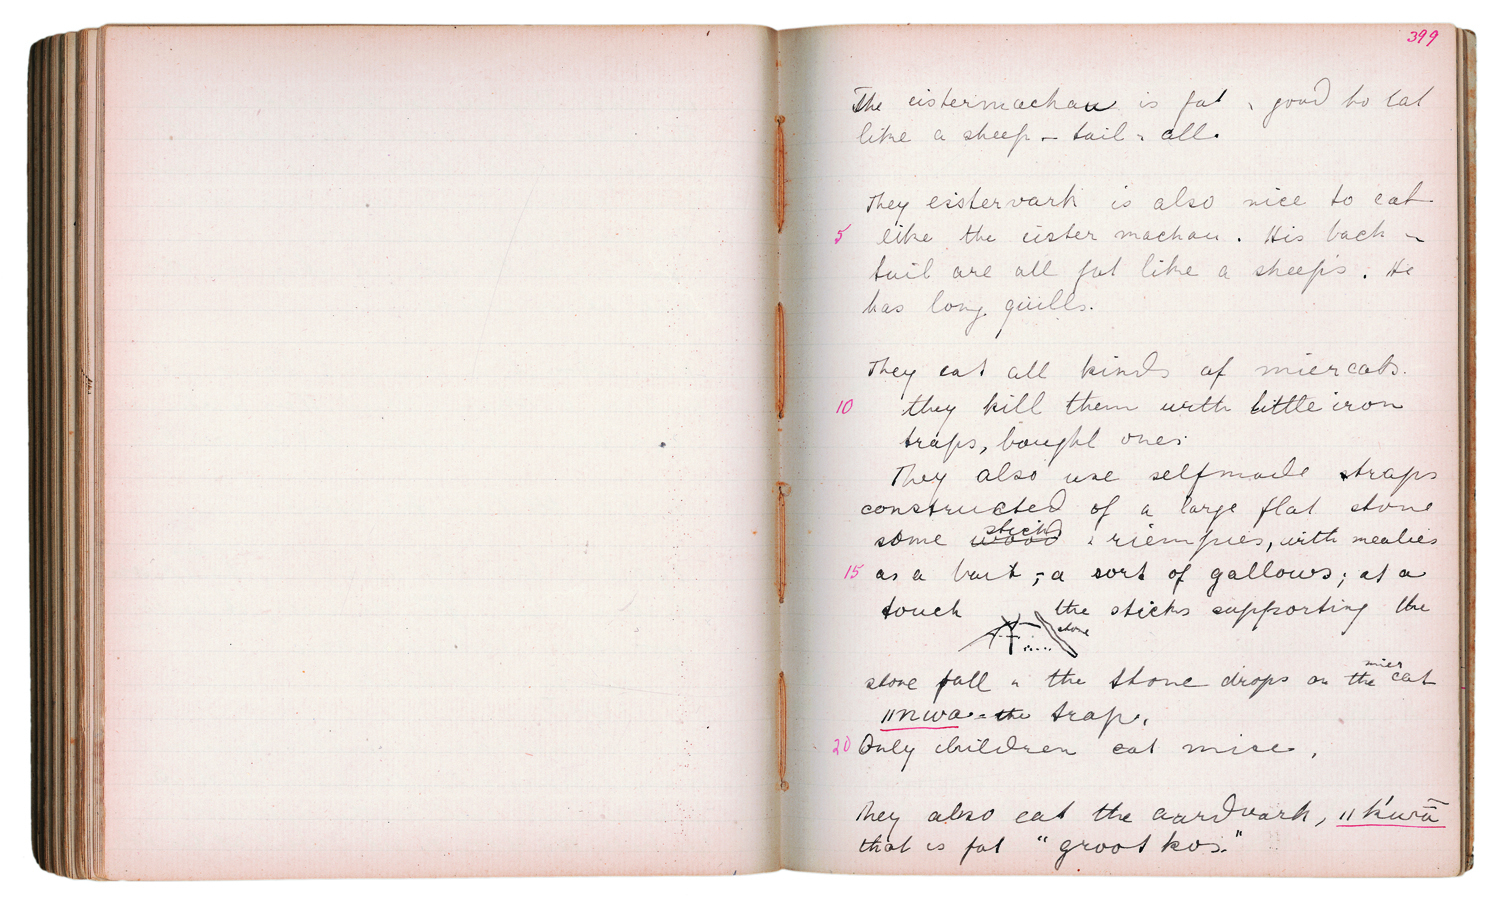 399
The eistermachau is fat, good to eat
like a sheep - tail & all.
They eistervark is also nice to eat
5 like the eister machau. His back &
tail are all fat like a sheep's. He
has long quills.
They eat all kinds of miercats.
10 they kill them with little iron
traps, bought ones.
They also use selfmade straps
constructed of a large flat stone
some wood sticks & riempies, with mealies
15 as a bait; - a sort of gallows; at a
touch the sticks supporting the
stone
stone fall & the stone drops on the miercat
ǁnwa = the trap.
20 Only children eat mise.
They also eat the aardvark, ǁk'wā
that is fat "groot kos."